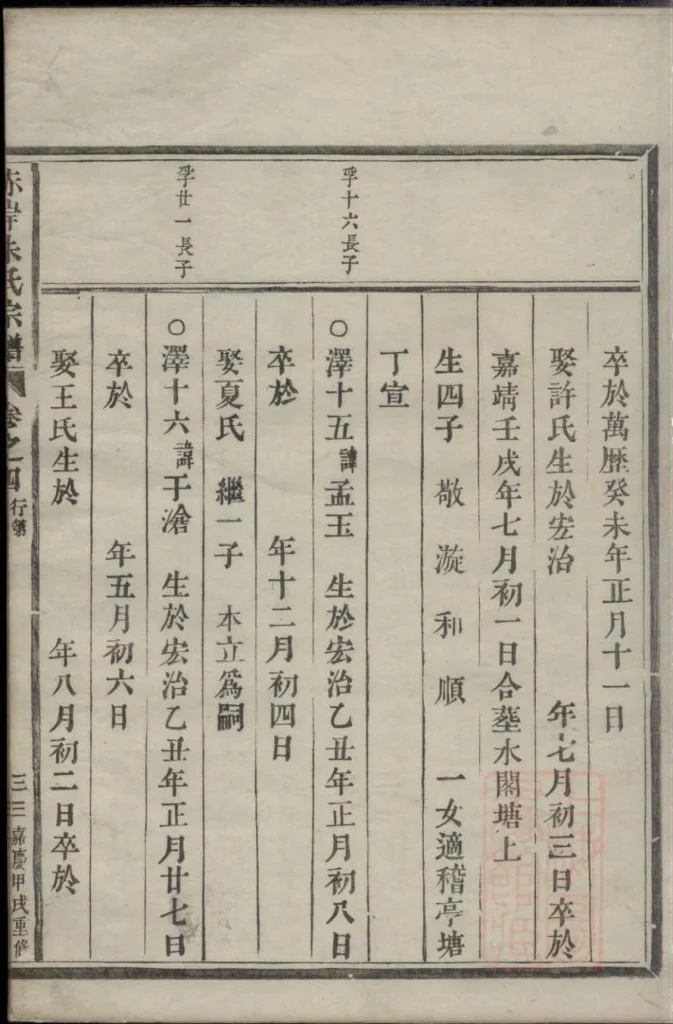 卒於萬歴癸未年正月十一日
娶許氏生於宏治　年七月初三日卒於
嘉靖壬戌年七月初一日合塟水閣塘上
生四子　敬　漩　和　順　一女適稽亭塘
丁宣
孚十六長子
○澤十五諱孟玉　生於宏治乙丑年正月初八日
卒於　年十二月初四日
娶夏氏　繼一子　本立為嗣
孚廿一長子
○澤十六諱于滄　生於宏治乙丑年正月廿七日
卒於　年五月初六日
娶王氏生於　年八月初二日卒於
赤岸朱氏宗譜　卷之四　行第　三三　嘉慶甲戌重修